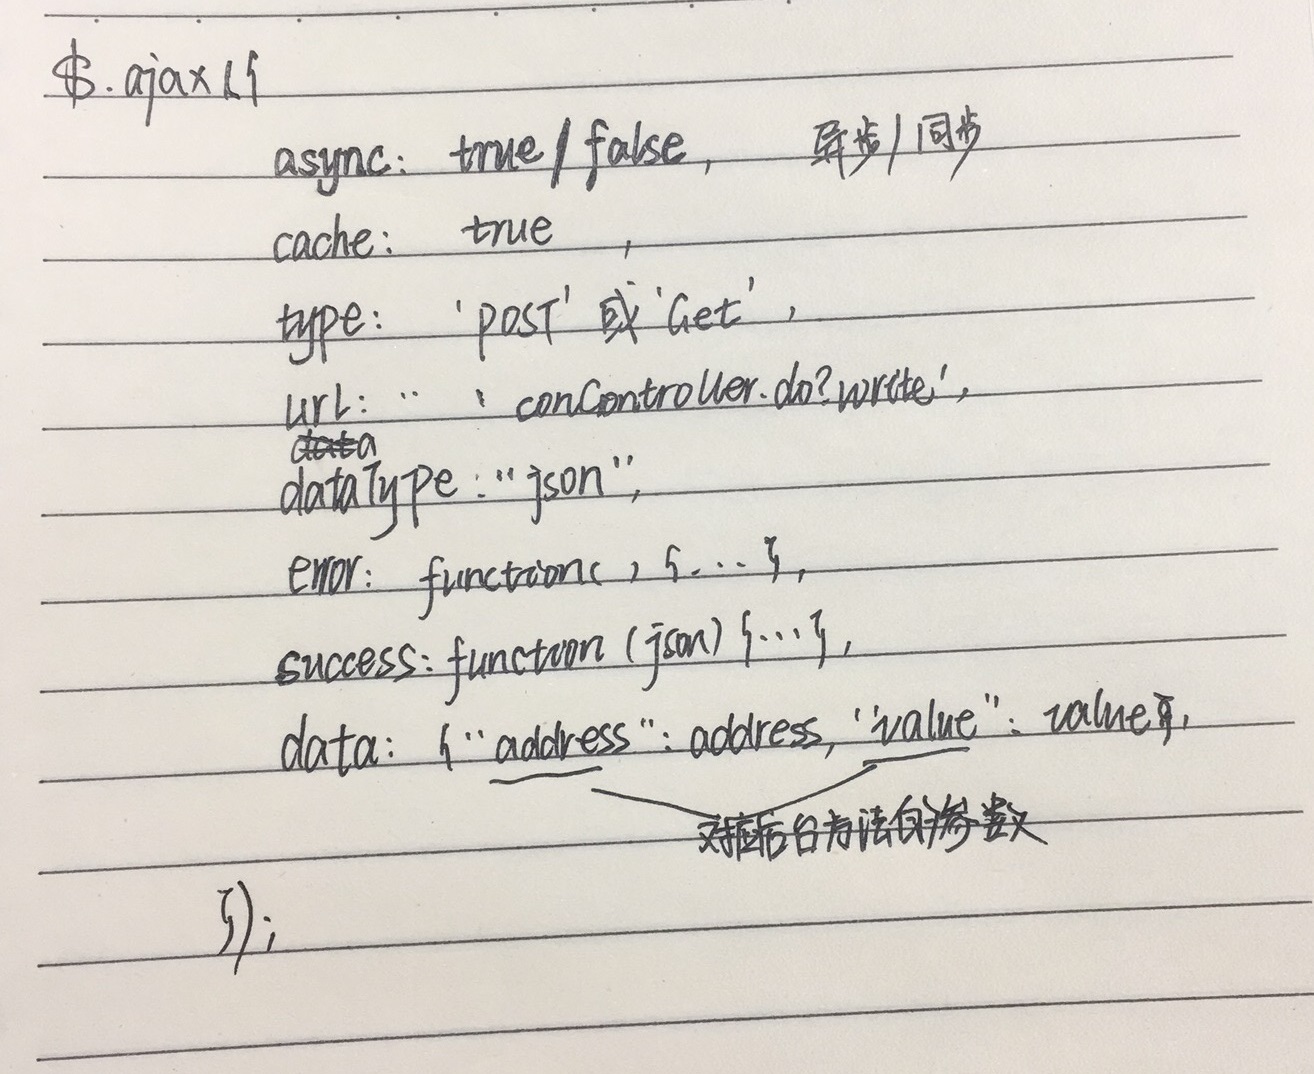 $.ajax({
async: true/false, 异步/同步
cache: true ,
type: 'POST' 或 'Get' ,
url: ·· 'conController.do?write',
data
dataType: "json",
error: function( ) {...},
success: function (json) {...},
data: {"address": address, "value": value},
对应后台方法的参数
});